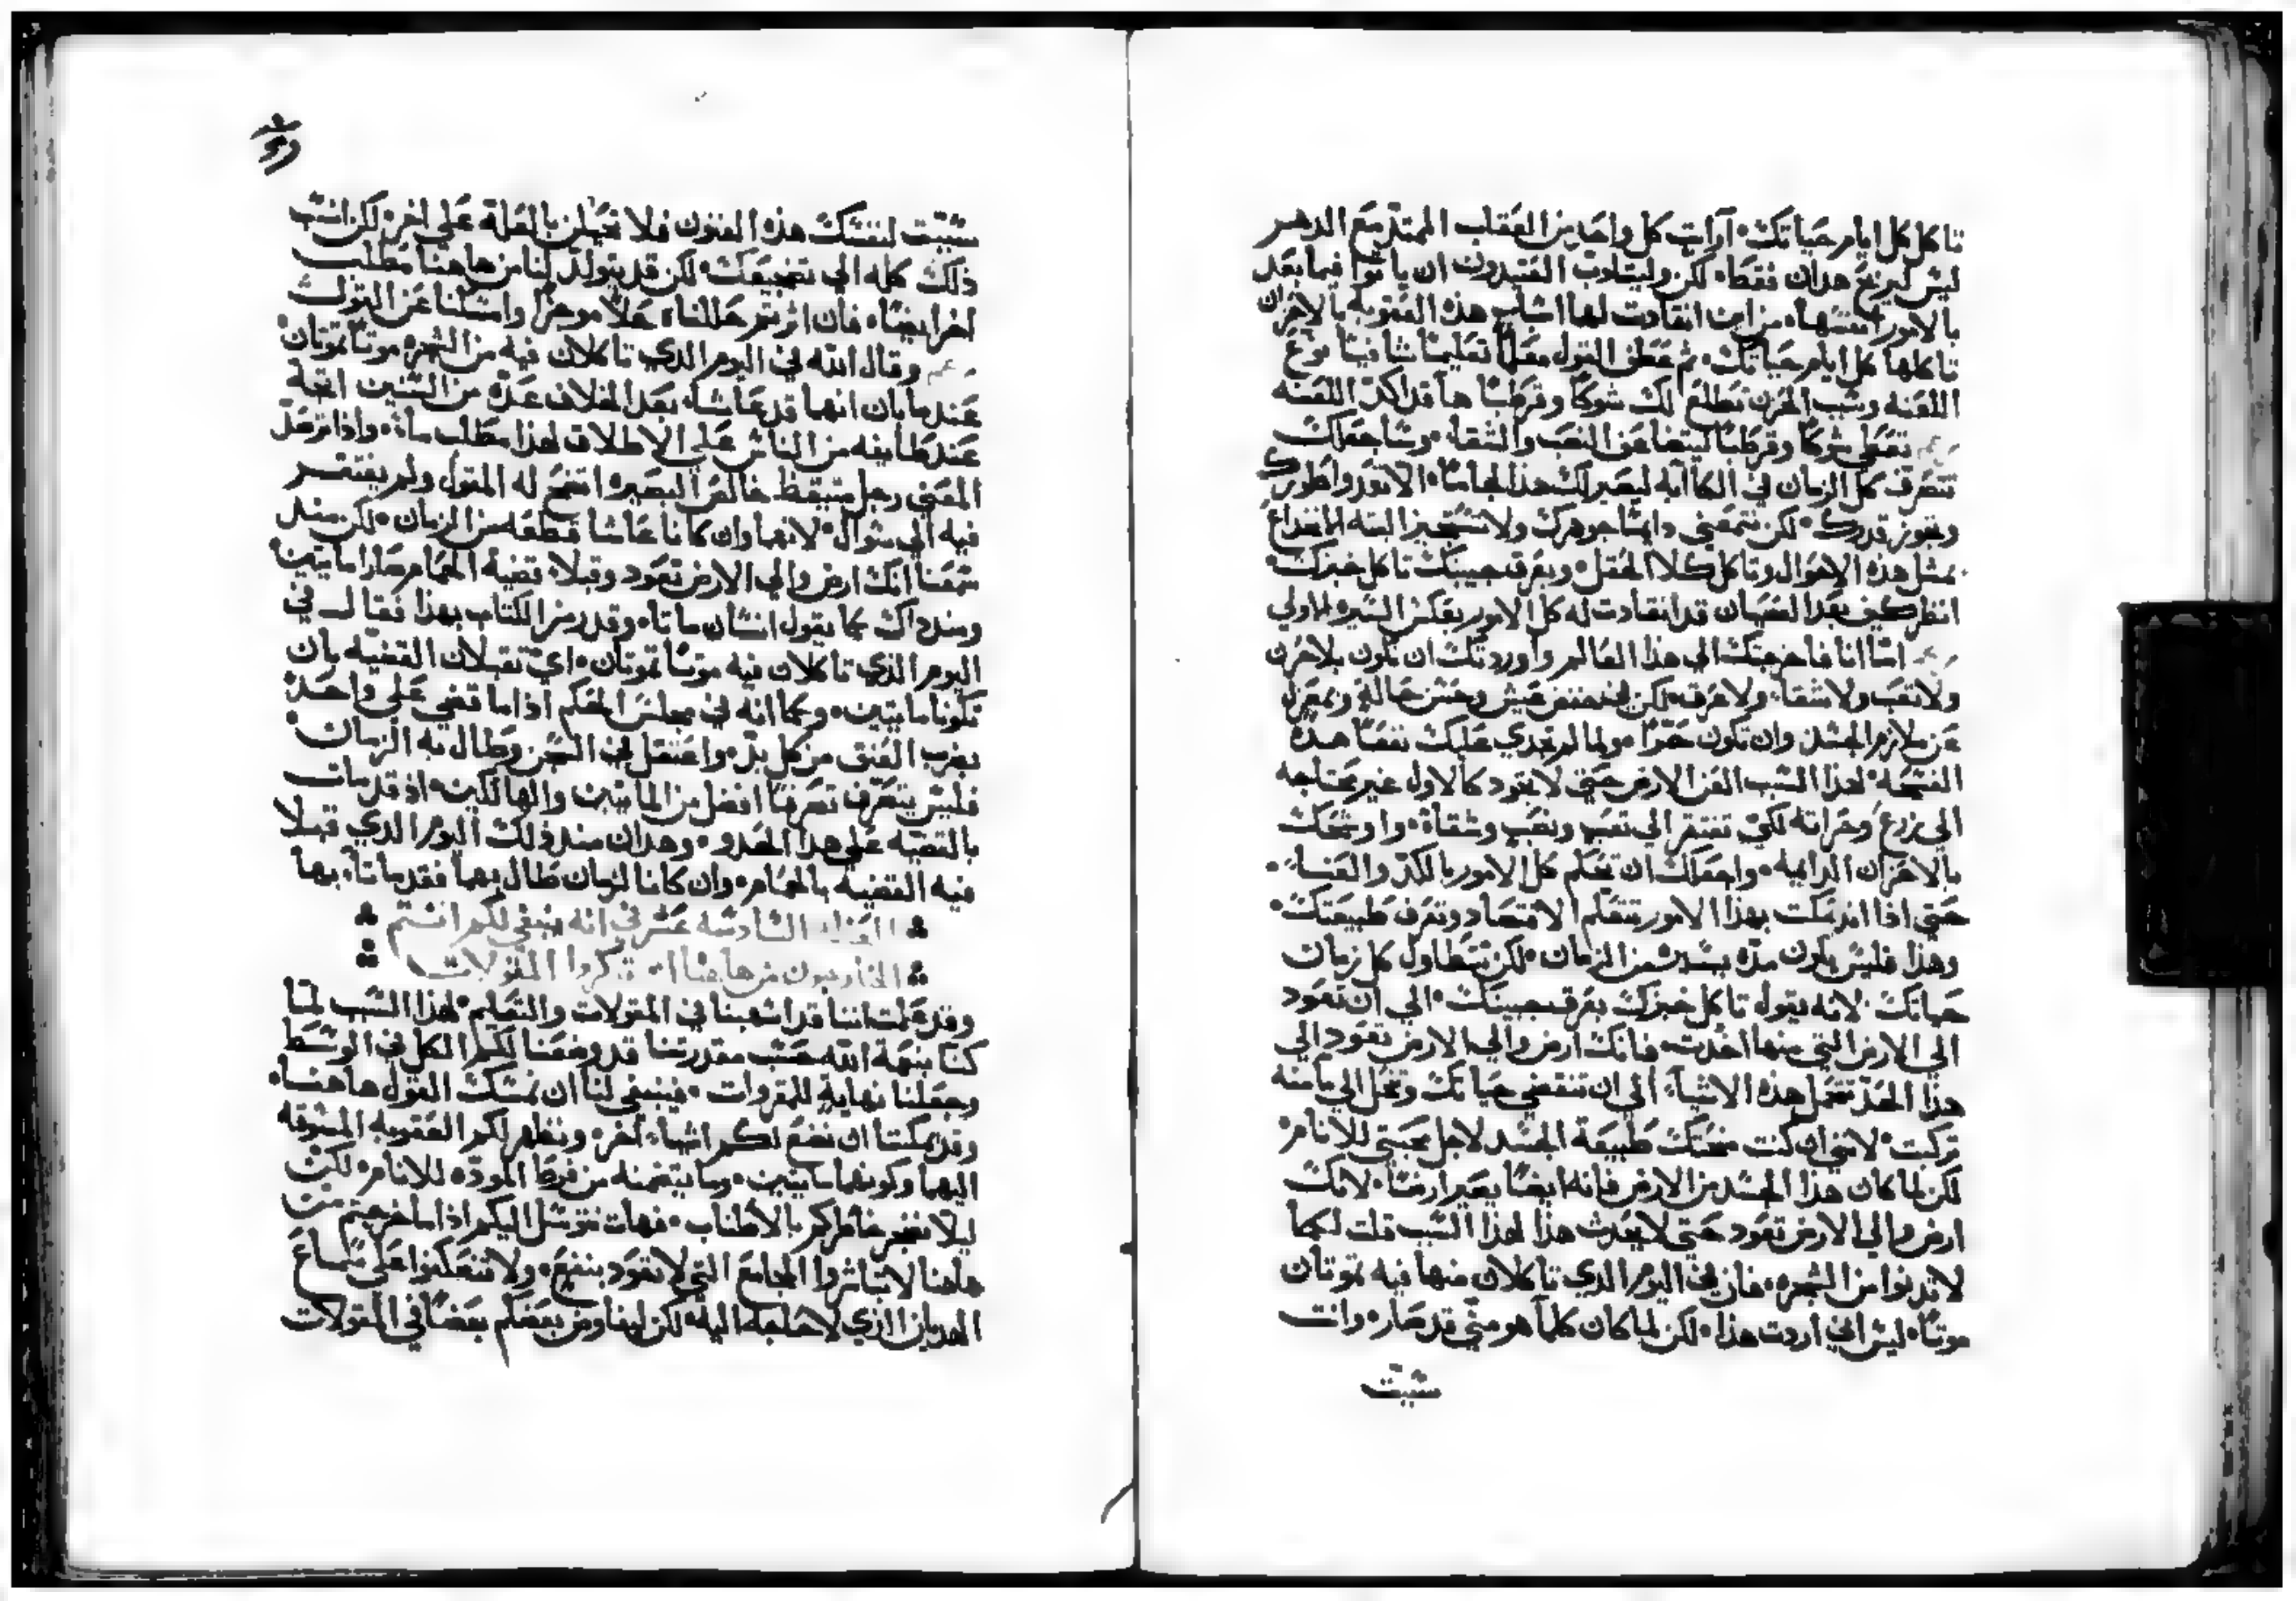 تاكل كل ايام حياتك. ارايت كل واحد من العقاب الممتد مع الدهر
ليس لم يزعج هدان فقط. لكن وليتادب العتيدون ان ياتوا فيما بعد
بالامور انفسها. من اين انقادت لها اسباب هذه العقوبه بالاحزان
تاكلها كل ايام حياتك. ثم عطف القول معلما تعليما شافيا نوع
اللعنه وسبب الحزن تطلع لك شوكا وقرطبا ها قد اكد اللعنه
تعطى شوكا وقرطبا ليتضا عن النصب والشقا. وساجعلك
تتصرف كل الزمان في الكاابه ليصير لك هذا لجاما. الا تعدوا طورك
وتجوز قدرك. لكن تتمعنى دايما جوهرك ولا تستجيز البته الانخداع
بمثل هذه الاحوال وتاكل كلا الحقل. وبعرق جبينك تاكل خبزك.
انظر كيف بعد العصيان قد انقادت له كل الامور بعكس السيره الاولي
اما انا فاخرجتك الي هذا العالم واوردتك ان تكون بلا حزن
ولا تعب ولا شقا. ولا عرق. لكن في خفض عيش وحسن حاله وبمعزل
عن لوازم الجسد وان تكون حرا. ولما لم تجدي عليك نفعا هذه
الفسحه. لهذا السبب العن الارض حتي لا تعود كالاول غير محتاجه
الي زرع وحراثه لكي تفتقر الي تعب ونصب وشقاة. واوشحك
بالاحزان الدايمه. واجعلك ان تحكم كل الامور بالكد والعنا.
حتي اذا اندعكت بهذا الامور تتعلم الاقتصاد وتعرف طبيعتك.
وهذا فليس يكون مده يسيره من الزمان. لكن تتطاول كل زمان
حياتك. لانه يقول تاكل خبزك بعرق جبينك. الي ان تعود
الي الارض التي منها اخذت. فانك ارض والي الارض تعود الي
هذا الحد تحتمل هذه الاشياء الي ان تنقضي حياتك وتحل الي ما منه
تركبت. لانني ان كنت منحتك طبيعة الجسد لاجل محبتي للانام.
لكن لما كان هذا الجسد من الارض فانه ايضا يصير ارضا. لانك
ارض والي الارض تعود حتي لا يحدث هذا لهذا السبب قلت لكما
لا تدنوا من الشجره. فان في اليوم الذي تاكلان منها فيه تموتان
موتا. ليس اني اردت هذا. لكن لما كان كلما هو مني قد صار. وانت
سببت
سببت لنفسك هذه الفنون فلا تحيلن بالعلة علي اخر. لكن انسب
ذلك كله الي تضجيعك. لكن قد يتولد لنا من هاهنا مطلب
اخر ايضا. فان اثرتم حللناه حلا موجزا وامسكنا عن القول
وقال الله في اليوم الذي تاكلان فيه من الشجره موتا تموتان
عندما بان انهما قد عاشا. بعد الخلاف عدة من السنين اتجه
عند طايفه من الناس علي الاطلاق لهذا مطلب ماة. واذا ترصد
المعني رجل متيقظ خالص البصيره اتضح له القول ولم يفتقر
فيه الي سوال. لانهما وان كانا عاشا قطعه من الزمان. لكن مند
سمعنا انك ارض والي الارض تعود وقبلا قضية الحمام صارا مايتين
ومند ذاك كما يقول انسان ماتا. وقد رمز الكتاب بهذا فقال في
اليوم الذي تاكلان فيه موتا تموتان. اي تقبلان القضيه بان
تكونا مايتين. وكما انه في مجلس الحكم اذا ما قضي علي واحد
بضرب العنق من كل بد. واعتقل في السجن وطال به الزمان
فليس يتصرف تصرفا افضل من المايتين والهالكين. اذ قد مات
بالقضيه علي هذا الحدو. وهدان مند ذلك اليوم الذي قبلا
فيه القضيه بالحمام. وان كانا لزمان طال بهما فقد ماتا. بها
العظه السادسه عشر في انه ينبغي لكم انتم
الخارجون من هاهنا ان تذكروا المقولات
وقد علمت اننا قد اسهبنا في المقولات والتعليم. لهذا السبب لما
كنا بنعمة الله حسب مقدرتنا قد وضعنا لكم الكل في الوسط
وجعلنا نهاية للمقروات. فينبغي لنا ان نمسك القول هاهنا.
وقد يمكننا ان نضع لكم اشياء اخر. ونظهر لكم العقوبه المسوقه
اليهما وكونهما مايتين. وما يتضمنه من فرط الموده للانام. لكن
ليلا نضجر خاطركم بالاطناب. فهات نتوسل اليكم اذا ما خرجتم من
هاهنا لا تباشروا المجامع التي لا تعود بنفع. ولا تنعكفوا علي سماع
الهديان الذي لا حاجه اليه. لكن ليفاوض بعضكم بعضا في المقولات